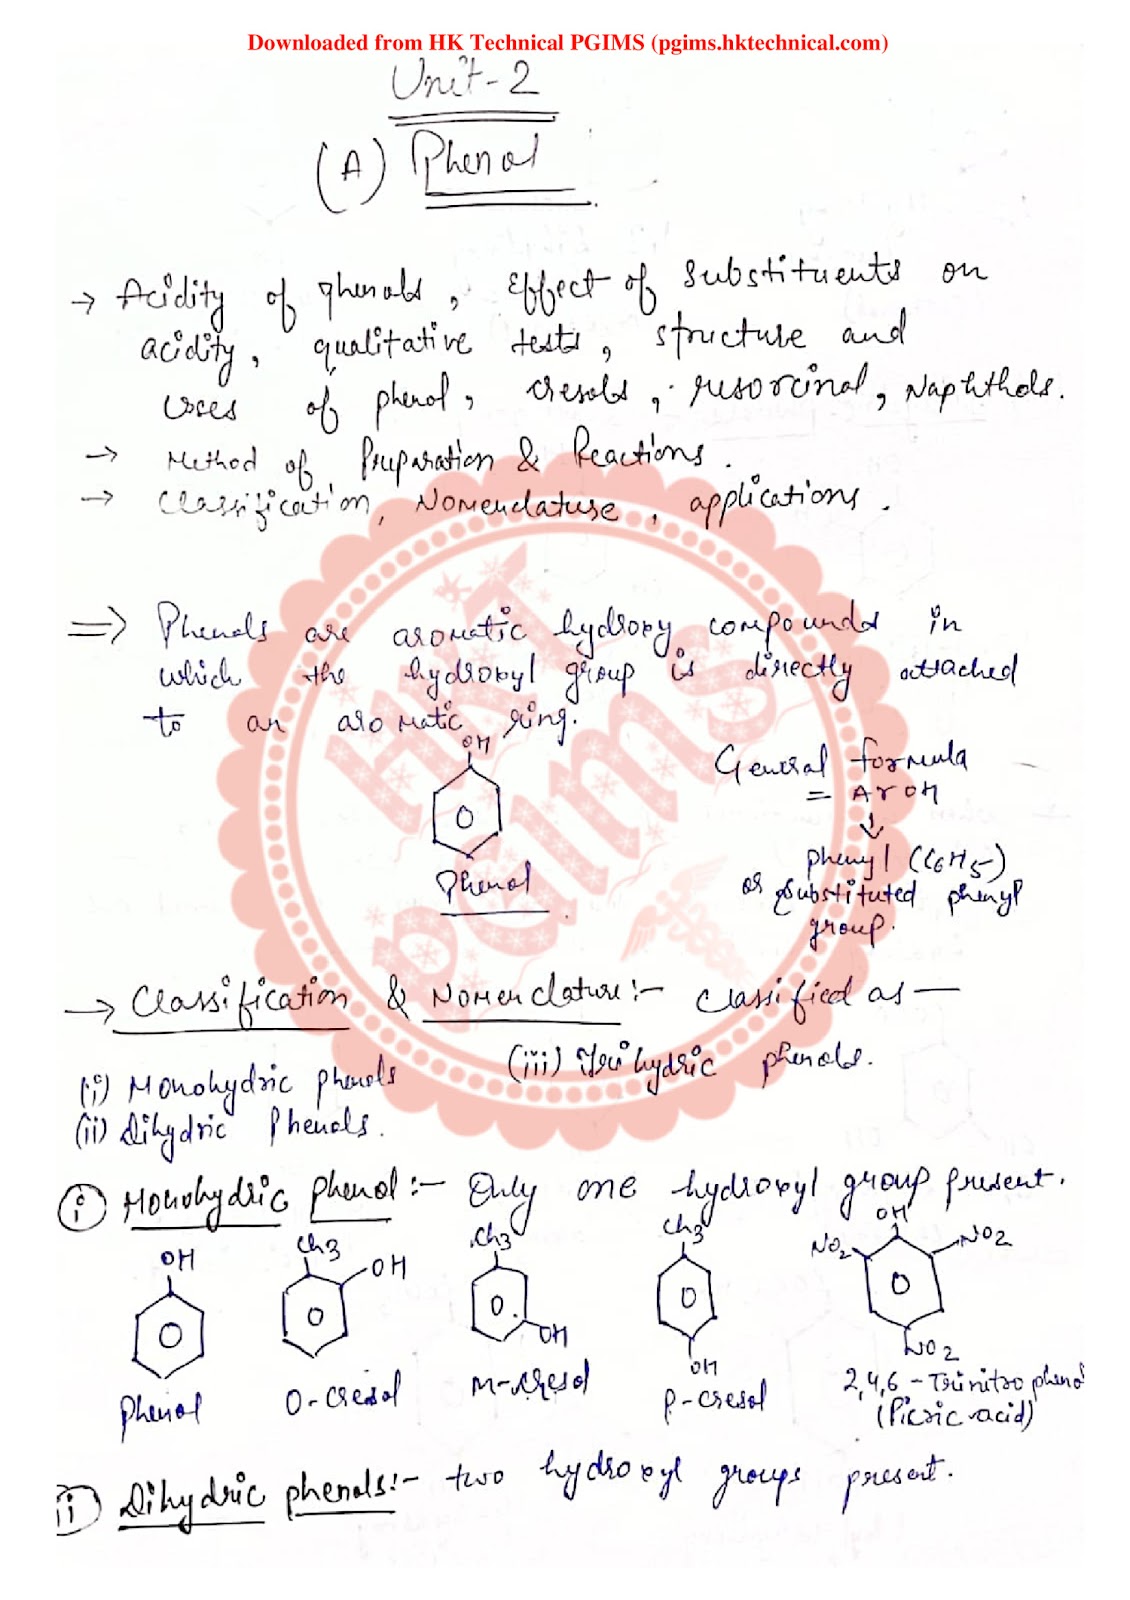 Downloaded from HK Technical PGIMS (pgims.hktechnical.com)
Unit-2
(A) Phenol
→ Acidity of phenols, Effect of substituents on
acidity, qualitative tests, structure and
uses of phenol, cresols, resorcinol, Naphthols.
→ Method of Preparation & Reactions.
→ Classification, Nomenclature, applications.
⇒ Phenols are aromatic hydroxy compounds in
which the hydroxyl group is directly attached
to an aromatic ring.
OH
Phenol
General formula
= ArOH
↓
phenyl (C6H5-)
or substituted phenyl
group.
HKT
PGIMS
→ Classification & Nomenclature:- classified as —
(i) Monohydric phenols
(ii) Dihydric Phenols.
(iii) Trihydric phenols.
(i) Monohydric phenol:- Only one hydroxyl group present.
OH
Phenol
CH3
OH
O-cresol
CH3
OH
M-cresol
CH3
OH
P-cresol
OH
NO2
NO2
NO2
2,4,6 - Trinitrophenol
(Picric acid)
(ii) Dihydric phenols:- two hydroxyl groups present.